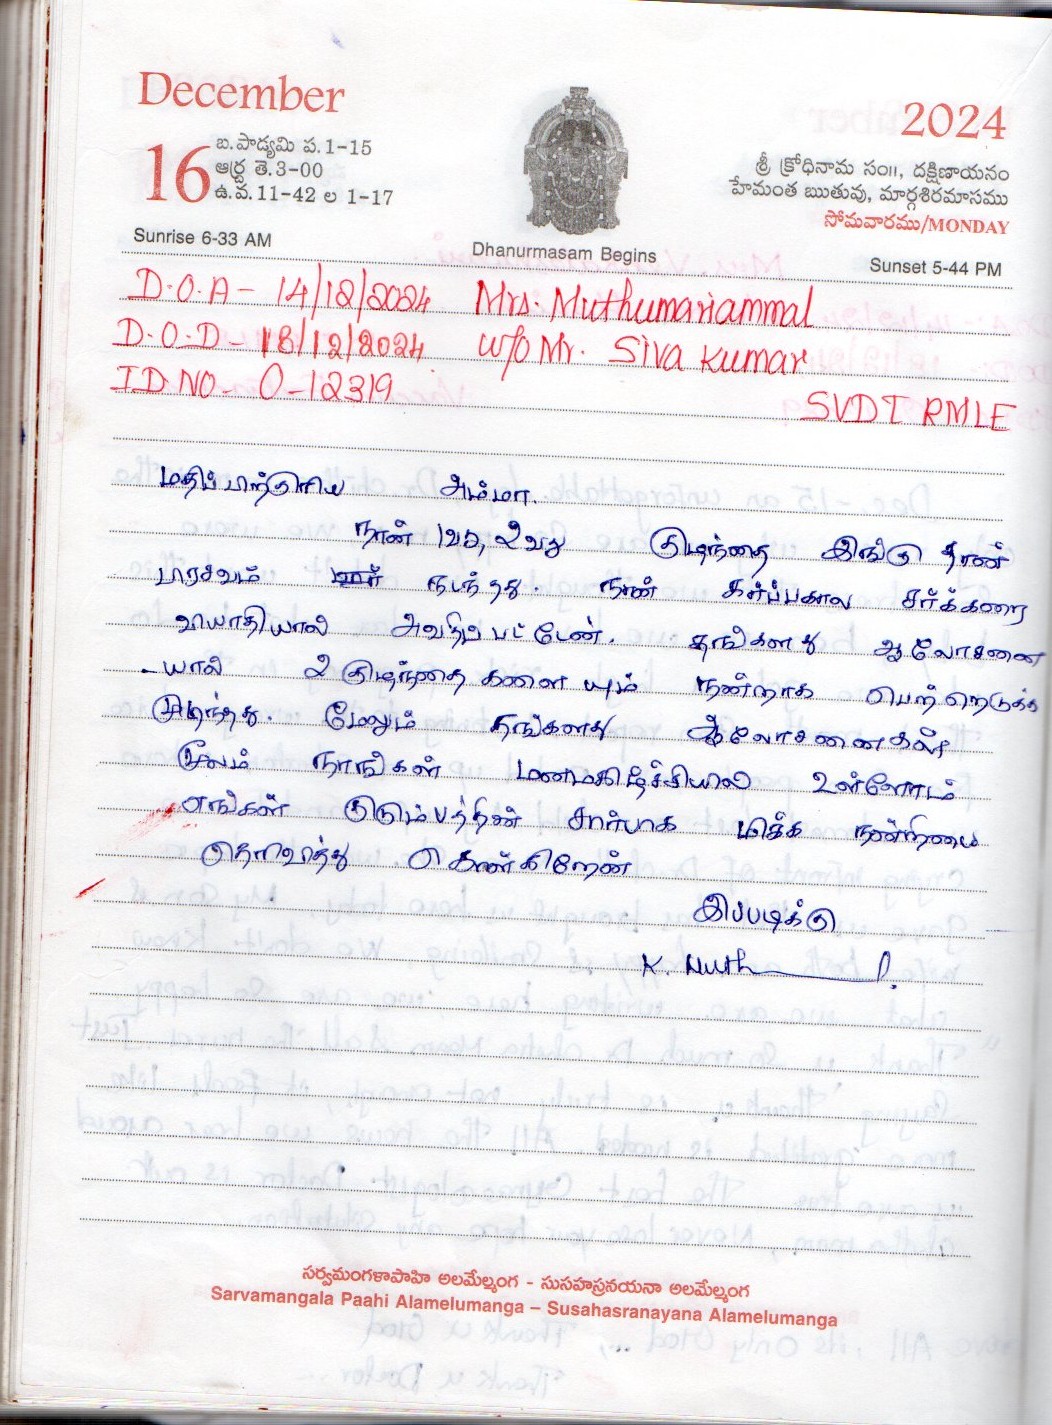 December
2024
16
బ.పాడ్యమి ప.1-15
ఆర్ద్ర తె.3-00
ఉ.వ.11-42 ల 1-17
శ్రీ క్రోధినామ సం॥, దక్షిణాయనం
హేమంత ఋతువు, మార్గశిరమాసము
సోమవారము/MONDAY
Sunrise 6-33 AM
Dhanurmasam Begins
Sunset 5-44 PM
D.O.A - 14/12/2024 Mrs. Muthumariammal
D.O.D - 18/12/2024 w/o Mr. Siva Kumar
ID NO - O-12319
SVDT RMLE
மதிப்பிற்குரிய அம்மா.
நான் 1வது, 2வது குழந்தை இங்கு தான்
பிரசவம் நடந்தது. நான் கர்ப்பகால சர்க்கரை
வியாதியால் அவதிப் பட்டேன். தங்களது ஆலோசனை
-யால் 2 குழந்தை களை யும் நன்றாக பெற்றெடுக்க
முடிந்தது. மேலும் தங்களது ஆலோசனைகள்
மூலம் நாங்கள் மனமகிழ்ச்சியில் உள்ளோம்
எங்கள் குடும்பத்தின் சார்பாக மிக்க நன்றியை
தெரிவித்து கொள்கிறேன்
இப்படிக்கு
K. Muth
సర్వమంగళాపాహి అలమేల్మంగ - సుసహస్రనయనా అలమేల్మంగ
Sarvamangala Paahi Alamelumanga – Susahasranayana Alamelumanga